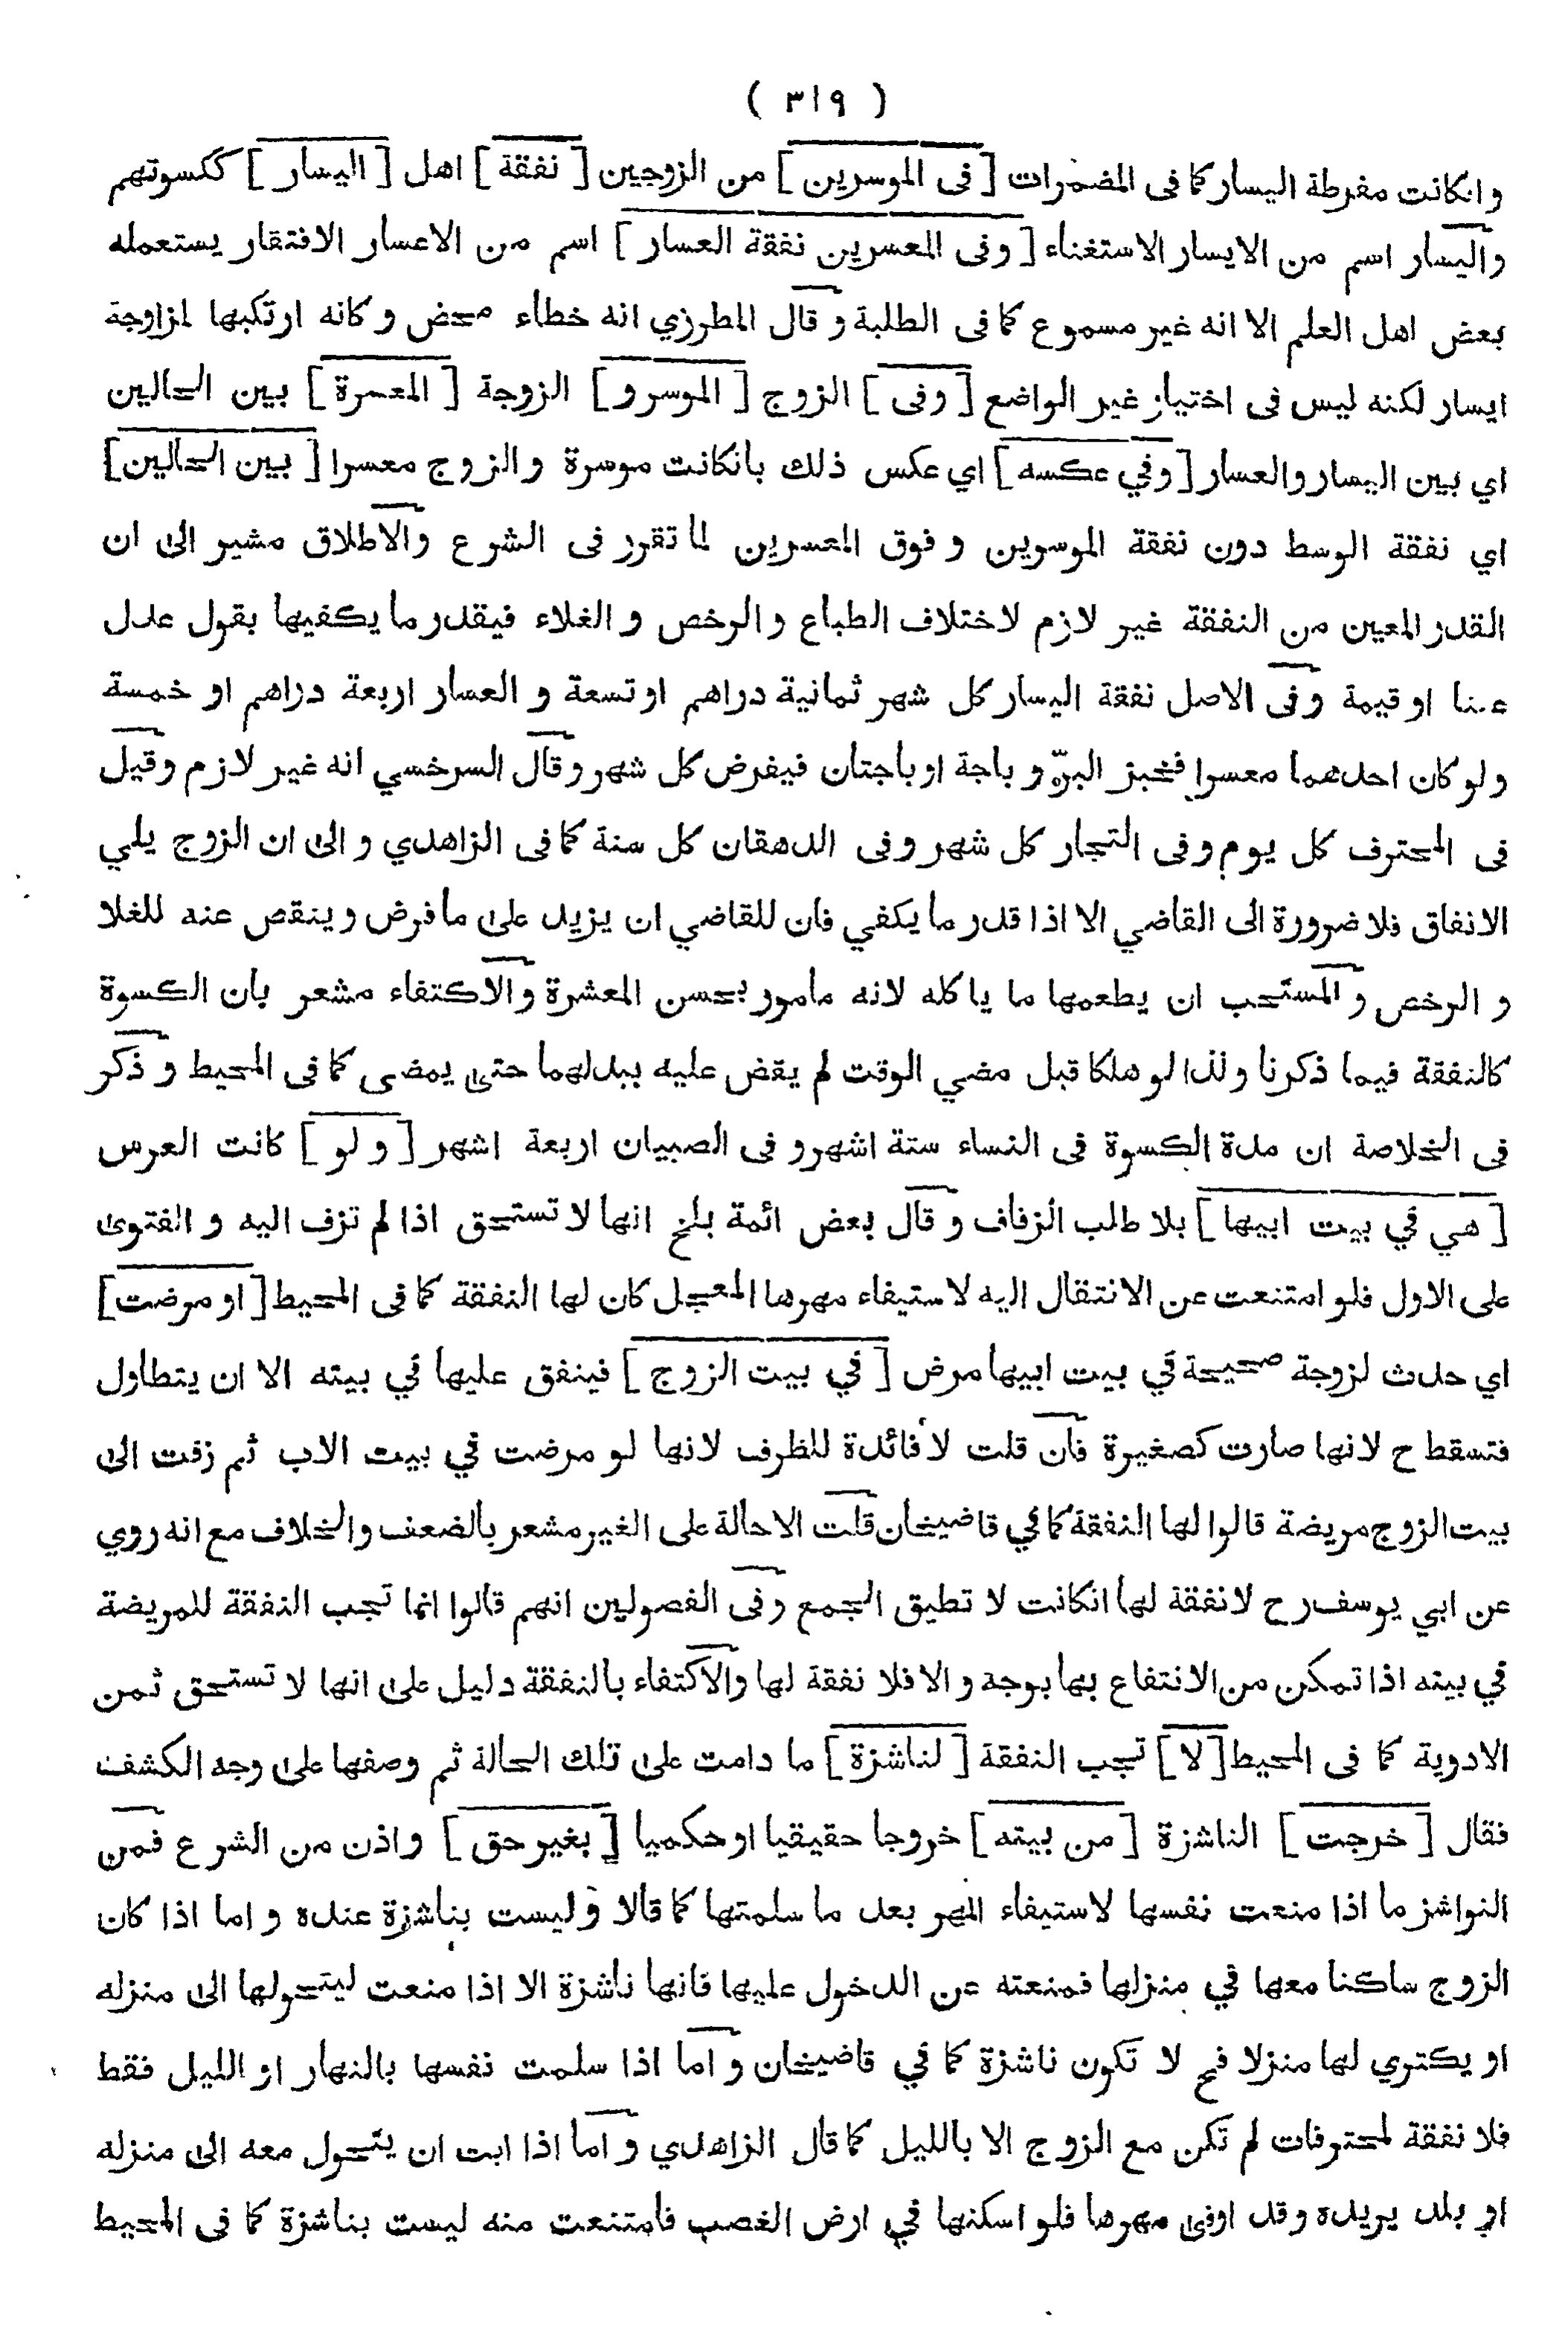 ( ٣١٩ )
وانكانت مفرطة اليسار كما فى المضمرات [ فى الموسرين ] من الزوجين [ نفقة ] اهل [ اليسار ] ككسوتهم
واليسار اسم من الايسار الاستغناء [ وفى المعسرين نفقة العسار ] اسم من الاعسار الافتقار يستعمله
بعض اهل العلم الا انه غير مسموع كما فى الطلبة وقال المطرزي انه خطاء محض وكانه ارتكبها لمزاوجة
ايسار لكنه ليس فى اختيار غير الواضع [ وفى ] الزوج [ الموسر و ] الزوجة [ المعسرة ] بين الحالين
اي بين اليسار والعسار [ وفي عكسه ] اي عكس ذلك بانكانت موسرة والزوج معسرا [ بين الحالين ]
اي نفقة الوسط دون نفقة الموسرين وفوق المعسرين لما تقرر فى الشرع والاطلاق مشير الى ان
القدر المعين من النفقة غير لازم لاختلاف الطباع والرخص والغلاء فيقدر ما يكفيها بقول عدل
عينا او قيمة وفى الاصل نفقة اليسار كل شهر ثمانية دراهم او تسعة والعسار اربعة دراهم او خمسة
ولو كان احدهما معسرا فخبز البرّ و باجة او باجتان فيفرض كل شهر وقال السرخسي انه غير لازم وقيل
فى المحترف كل يوم وفى التجار كل شهر وفى الدهقان كل سنة كما فى الزاهدي والى ان الزوج يلي
الانفاق فلا ضرورة الى القاضي الا اذا قدر ما يكفي فان للقاضي ان يزيد على ما فرض وينقص عنه للغلا
و الرخص والمستحب ان يطعمها ما ياكله لانه مامور بحسن المعشرة والاكتفاء مشعر بان الكسوة
كالنفقة فيما ذكرنا ولذا لو هلكا قبل مضي الوقت لم يقض عليه ببدلهما حتى يمضى كما فى المحيط وذكر
فى الخلاصة ان مدة الكسوة فى النساء ستة اشهر و فى الصبيان اربعة اشهر [ و لو ] كانت العرس
[ هي في بيت ابيها ] بلا طلب الزفاف وقال بعض ائمة بلخ انها لا تستحق اذا لم تزف اليه و الفتوى
على الاول فلو امتنعت عن الانتقال اليه لاستيفاء مهرها المعجل كان لها النفقة كما فى المحيط [ او مرضت ]
اي حدث لزوجة صحيحة في بيت ابيها مرض [ في بيت الزوج ] فينفق عليها في بيته الا ان يتطاول
فتسقط ح لانها صارت كصغيرة فان قلت لا فائدة للظرف لانها لو مرضت في بيت الاب ثم زفت الى
بيت الزوج مريضة قالوا لها النفقة كما في قاضيخان قلت الاحالة على الغير مشعر بالضعف والخلاف مع انه روي
عن ابي يوسف رح لا نفقة لها انكانت لا تطيق الجمع وفى الفصولين انهم قالوا انما تجب النفقة للمريضة
في بيته اذا تمكن من الانتفاع بها بوجه و الا فلا نفقة لها والاكتفاء بالنفقة دليل على انها لا تستحق ثمن
الادوية كما فى المحيط [ لا ] تجب النفقة [ لناشزة ] ما دامت على تلك الحالة ثم وصفها على وجه الكشف
فقال [ خرجت ] الناشزة [ من بيته ] خروجا حقيقيا او حكميا [ بغير حق ] واذن من الشرع فمن
النواشز ما اذا منعت نفسها لاستيفاء المهر بعد ما سلمتها كما قالا وليست بناشزة عنده و اما اذا كان
الزوج ساكنا معها في منزلها فمنعته عن الدخول عليها فانها ناشزة الا اذا منعت ليتحولها الى منزله
او يكتري لها منزلا فح لا تكون ناشزة كما في قاضيخان و اما اذا سلمت نفسها بالنهار او الليل فقط
فلا نفقة لمحترفات لم تكن مع الزوج الا بالليل كما قال الزاهدي و اما اذا ابت ان يتحول معه الى منزله
او بلد يريده وقد اوفى مهرها فلو اسكنها في ارض الغصب فامتنعت منه ليست بناشزة كما فى المحيط